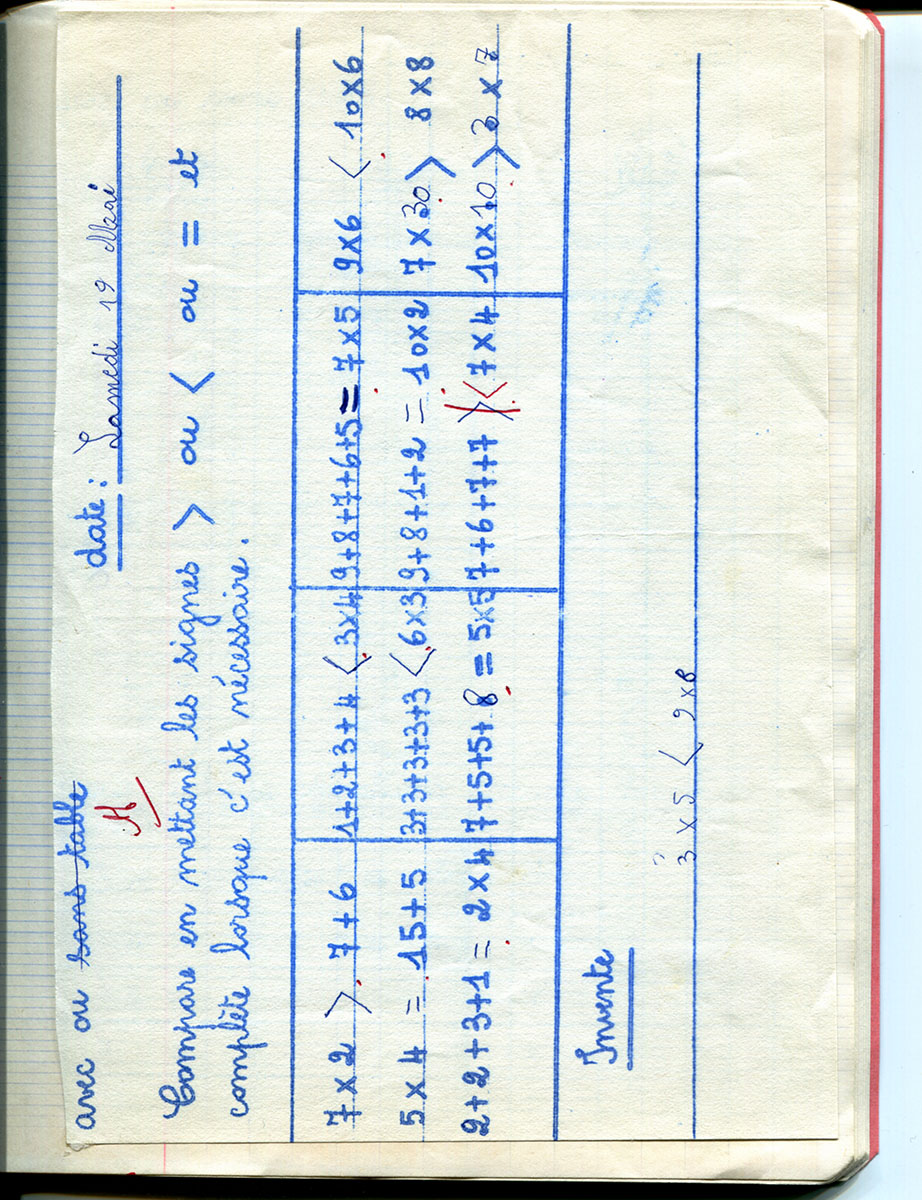 avec ou sans table
date: Samedi 19 Mai
Compare en mettant les signes > ou < ou = et
complète lorsque c'est nécessaire.
7×2 > 7+6 1+2+3+4 < 3×4 9+8+7+6+5 = 7×5 9×6 < 10×6
5×4 = 15+5 3+3+3+3+3 < 6×3 9+8+1+2 = 10×2 7×30 > 8×8
2+2+3+1 = 2×4 7+5+5+8 = 5×5 7+6+7+7 > < 7×4 10×10 > 3×7
Invente
3×5 < 9×8